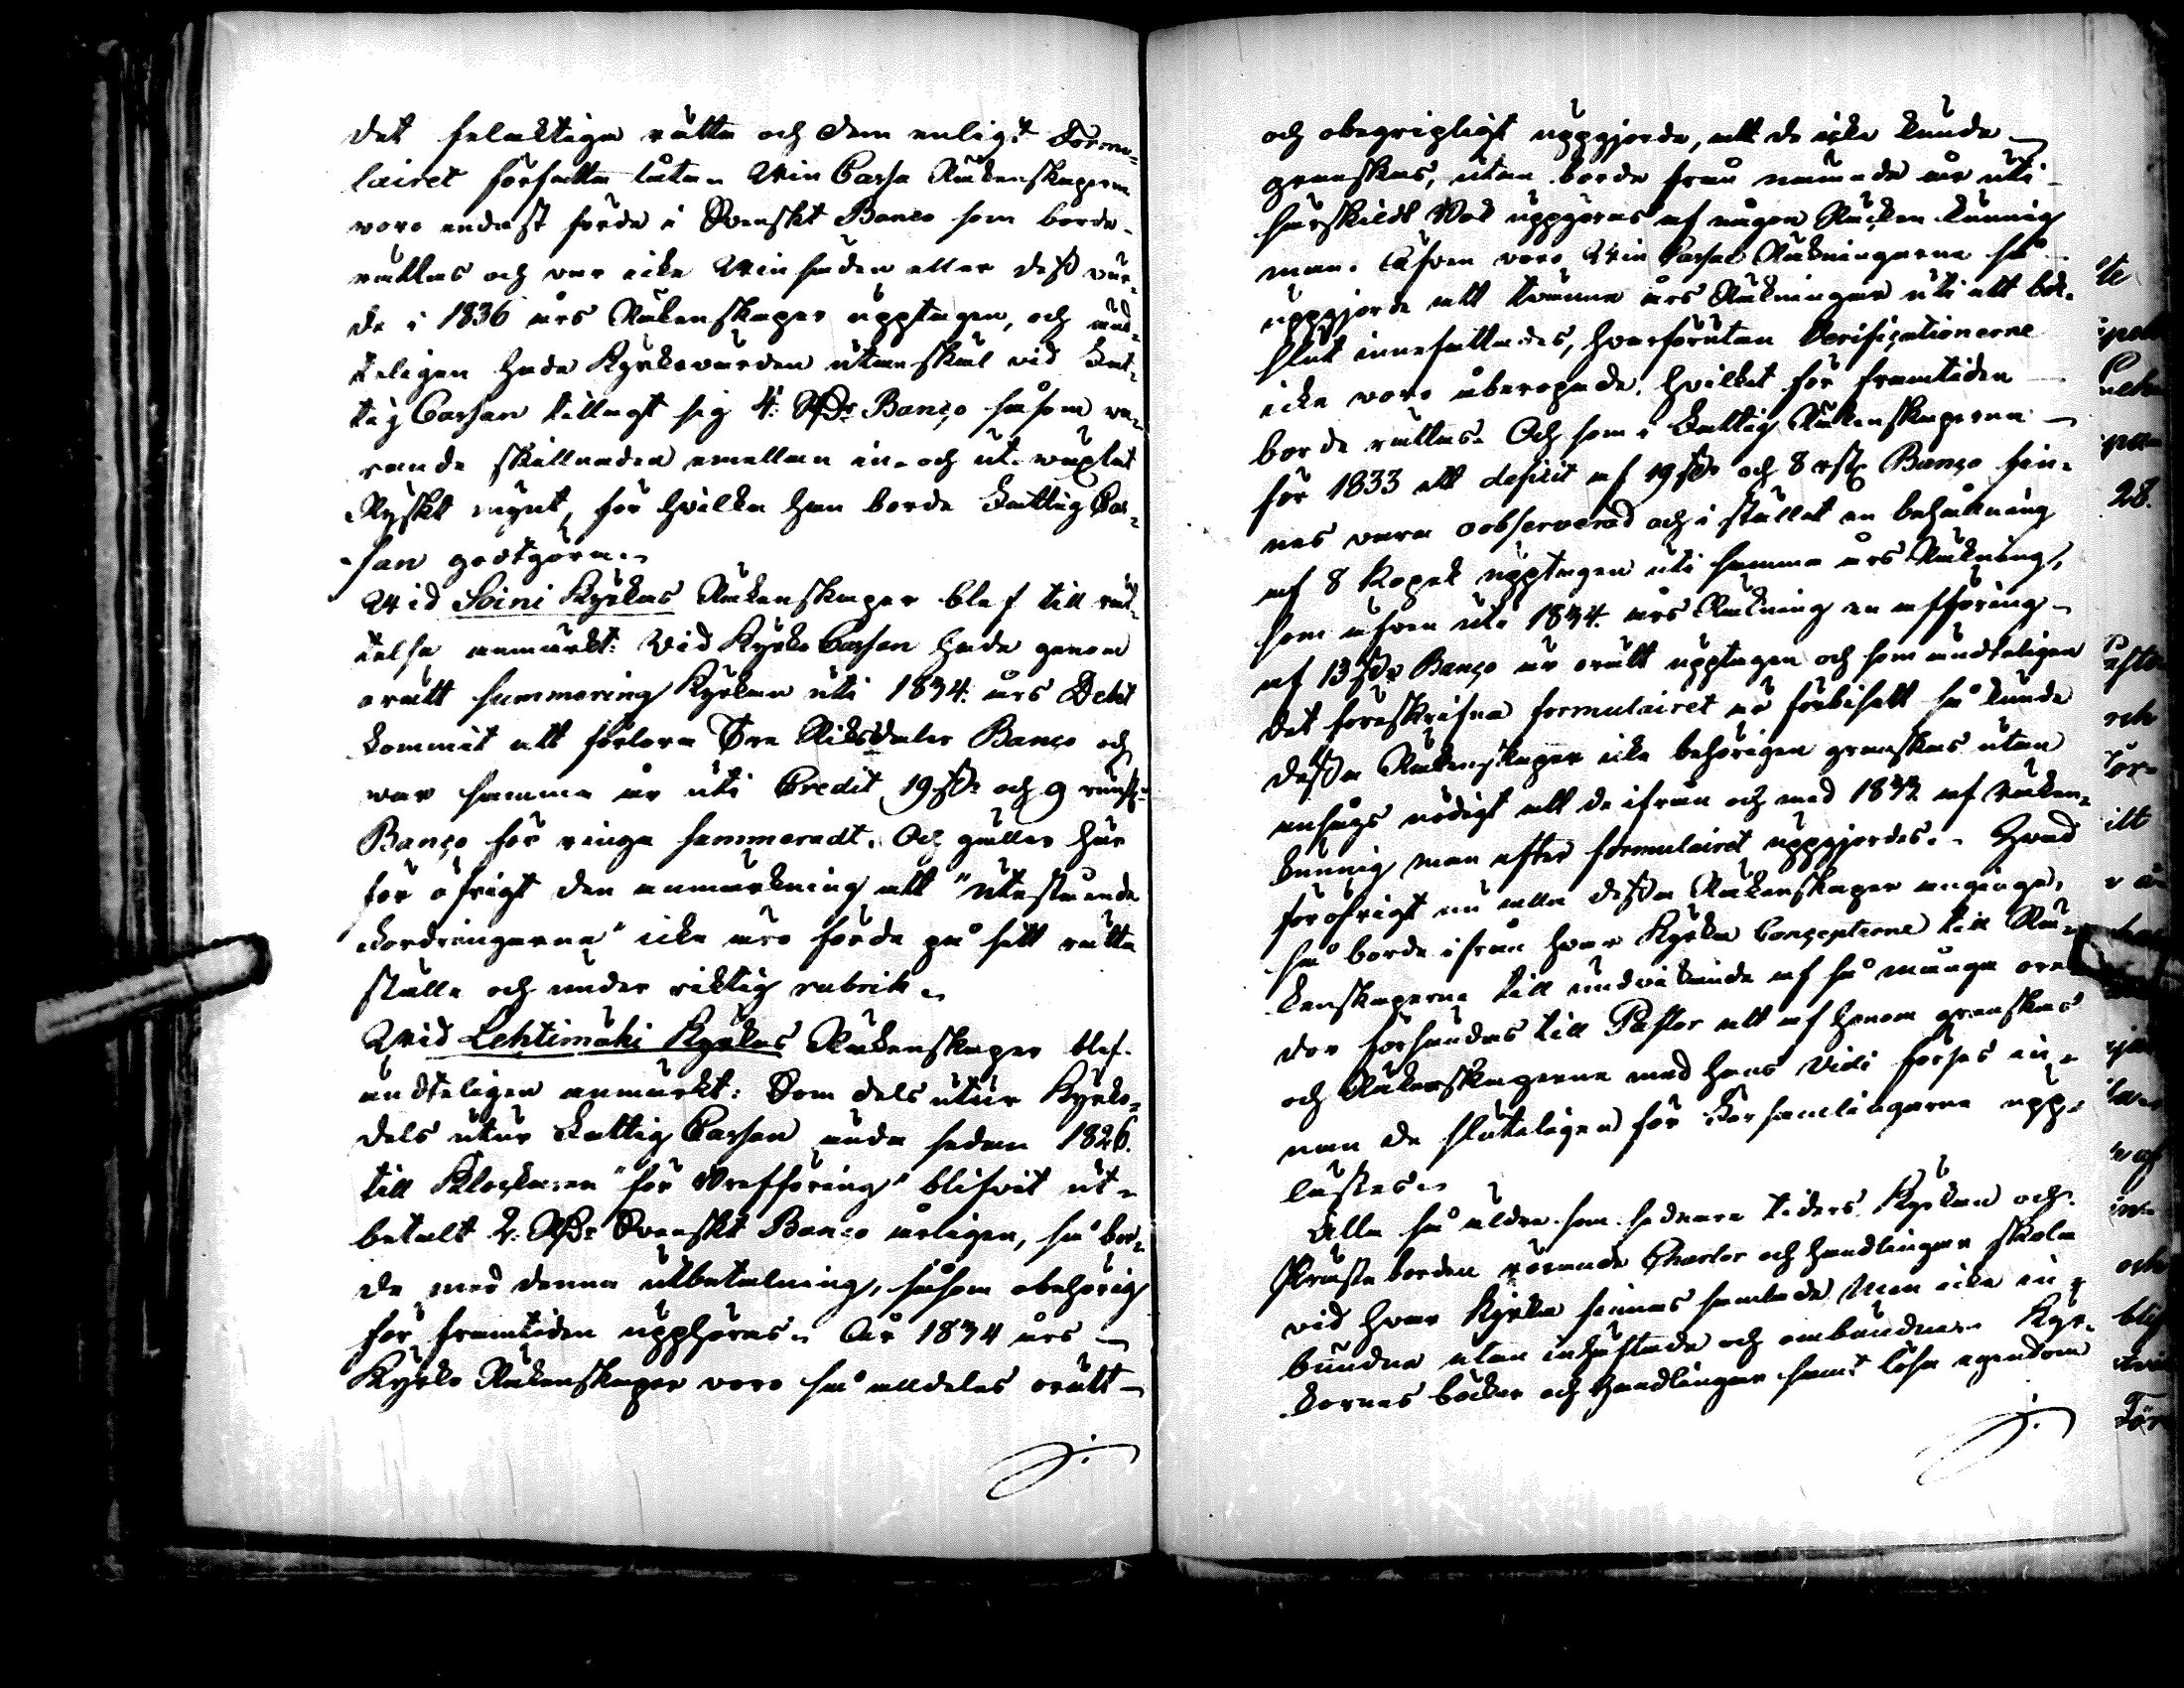 det felaktiga rätta och dem enligt Formu-
lairet författa låta. Win Cassa Räkenskaperna
voro endast förde i Svenskt Banco som borde
rättas och var icke Winsäden eller dess vär-
de i 1836 års Räkenskaper upptagen, och änd-
teligen hade Kyrkovärden utan skäl vid Fat-
tig Cassan tillagt sig 4: Rdr Banco såsom va-
rande skillnaden emellan in- och ut-wäxlat
Ryskt mynt, för hvilka han borde Fattig Cas-
san godtgöra.
Wid Soini Kyrkas Räkenskaper blef till rät-
telse anmärkt: Vid Kyrko Cassan hade genom
orätt summering Kyrkan uti 1834 års Debet
kommit att förlora Tre Riksdaler Banco och
war samma år uti Credit 19 sk och 9 runst
Banco för ringa summeradt. Och gäller här
för öfrigt den anmärkning att "Utestående
Fordringarna" icke äro förda på sitt rätta
ställe och under riktig rubrik.
Wid Lehtimäki Kyrkas Räkenskaper blef
ändteligen anmärkt: Som dels utur Kyrko-
dels utur Fattig Cassan ända sedan 1826
till Klockaren "för Skrifföring" blifvit ut-
betalt 2: Rdr Svenskt Banco årligen, så bor-
de med denna utbetalning, såsom obehörig
för framtiden upphöras. År 1834 års
Kyrko Räkenskaper voro så alldeles orätt
och obegripligt uppgjorde, att de icke kunde
granskas, utan borde från nämnde år uti
särskildt Bok uppgöras af någon Räkenkunnig
man. Äfven voro Win Cassae Räkningarna så
uppgjorde att tvänne års Räkningar uti ett bok-
slut innefattades, hvarförutan Verificationerne
icke voro åberopade, hvilket för framtiden
borde rättas. Och som i Fattig Räkenskaperna
för 1833 ett deficit af 19 sk och 8 rst Banco fin-
nes vara oobserverad och i stället en behållning
af 8 Kopek upptagen uti samma års Räkning,
som äfven uti 1834 års Räkning en afföring
af 13 sk Banco är orätt upptagen och som ändteligen
det föreskrifna formulairet är förbisett så kunde
dessa Räkenskaper icke behörigen granskas utan
ansågs nödigt att de ifrån och med 1833 af räken-
kunnig man efter formulairet uppgjordes. Hvad
föröfrigt nu alla dessa Räkenskaper angingo,
så borde ifrån hvar Kyrka Concepterne till Rä-
kenskaperne till undvikande af så många ore-
dor försändas till Pastor att af honom granskas
och Räkenskaperna med hans Vidi förses in-
nan de sluteligen för Församlingarne upp-
lästes.
Alla så äldre som sednare tiders Kyrkan och
Prästeborden rörande Chartor och handlingar skola
vid hvar Kyrka finnas samlade men icke in-
bundna utan inhäftade och ombundne. Kyr-
kornas böcker och Handlingar samt lösa egendom
28.